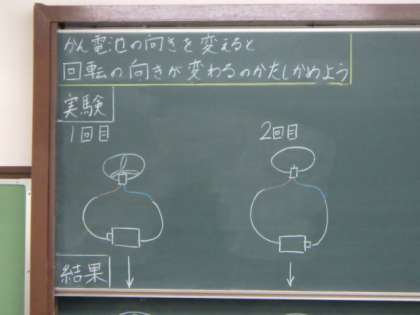 かん電池の向きを変えると
回転の向きが変わるのかたしかめよう
実験
1回目
2回目
結果